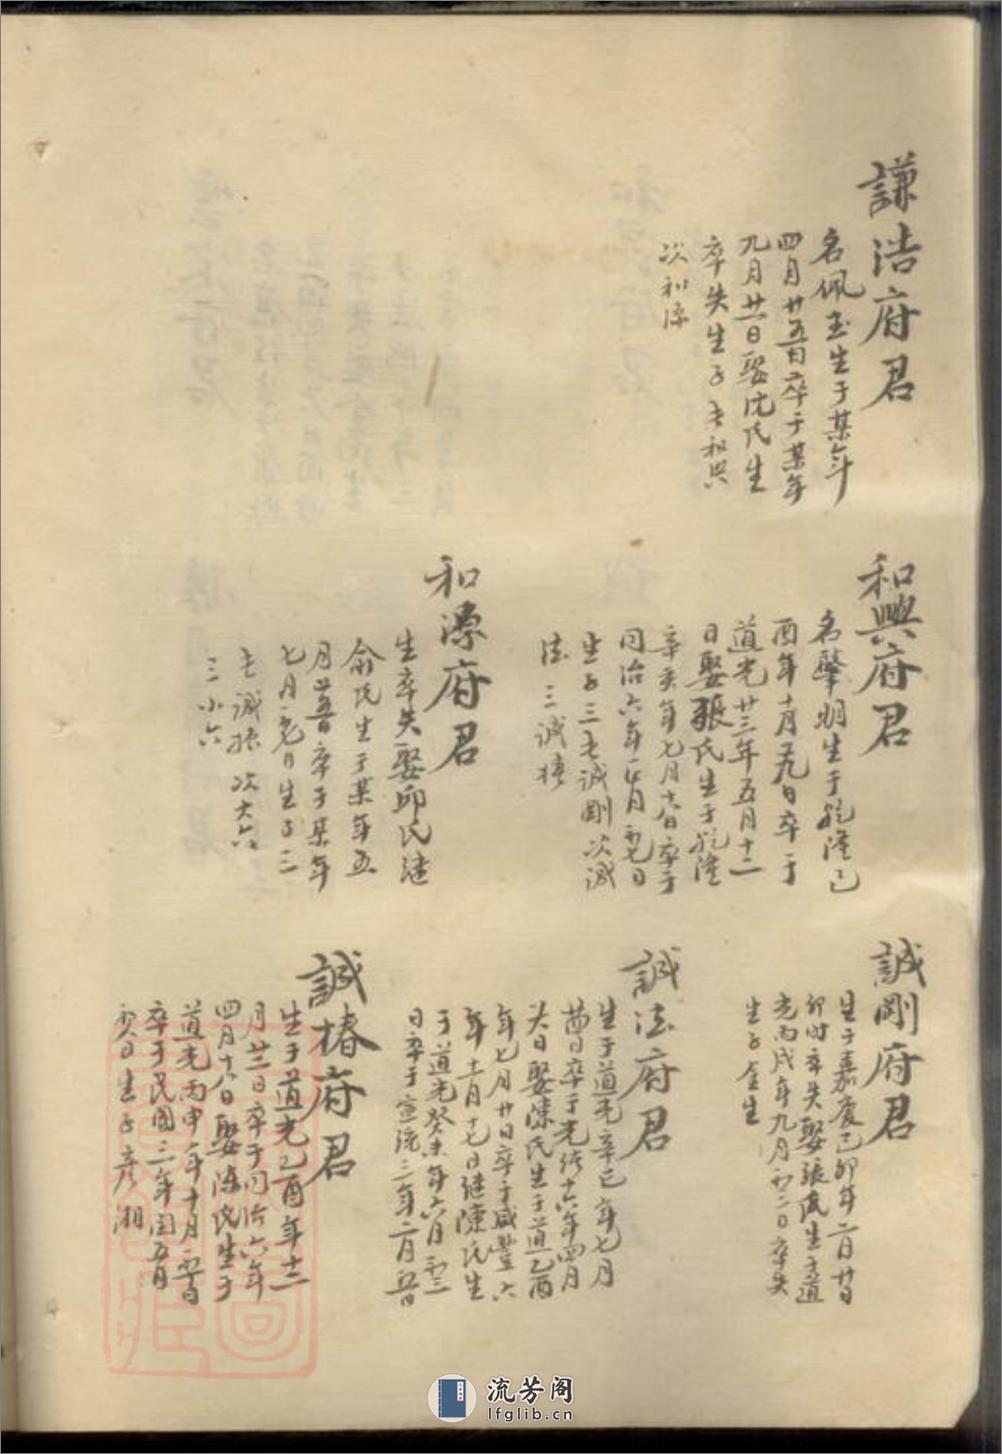 謙浩府君
名佩玉生于某年
四月廿五日卒于某年
九月廿一日娶沈氏生
卒失生子長和興
次和源
和興府君
名肇明生于乾隆己
酉年十月日卒于
道光廿三年五月十二
日娶張氏生于乾隆
辛亥年七月十八日卒于
同治六年正月初七日
生子三長誠剛次誠
法三誠椿
和源府君
生卒失娶邱氏继
俞氏生于某年五
月日卒于某年
七月初九日生子三
長誠振次大六
三小六
誠剛府君
生于嘉慶己卯年二月廿日
卯时卒失娶張氏生于道
光丙戌年九月初二日卒失
生子金生
誠法府君
生于道光辛巳年七月
初四日卒于光绪十六年四月
廿八日娶陳氏生于道光乙酉
年七月廿日卒于咸豐六
年十二月十七日继陳氏生
于道光癸未年六月初三
日卒于宣統三年二月初五日
誠椿府君
生于道光乙酉年十二
月廿三日卒于同治六年
四月十六日娶陈氏生于
道光丙申年十月初四日
卒于民國三年闰五月
初八日生子彦湘
流芳阁
lfglib.cn